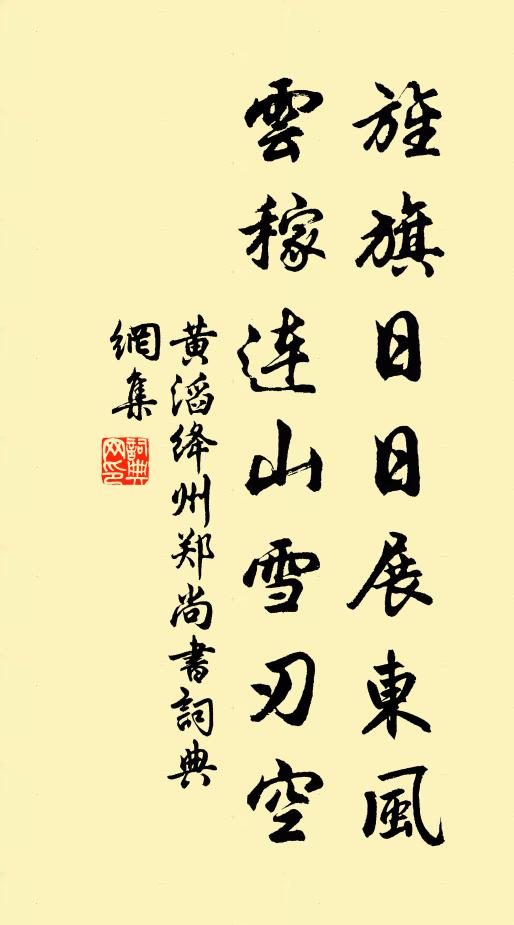 旌旗日日展東風
雲稼连山雪刃空
黄滔绛州郑尚書詞典
網集
詞典
网印